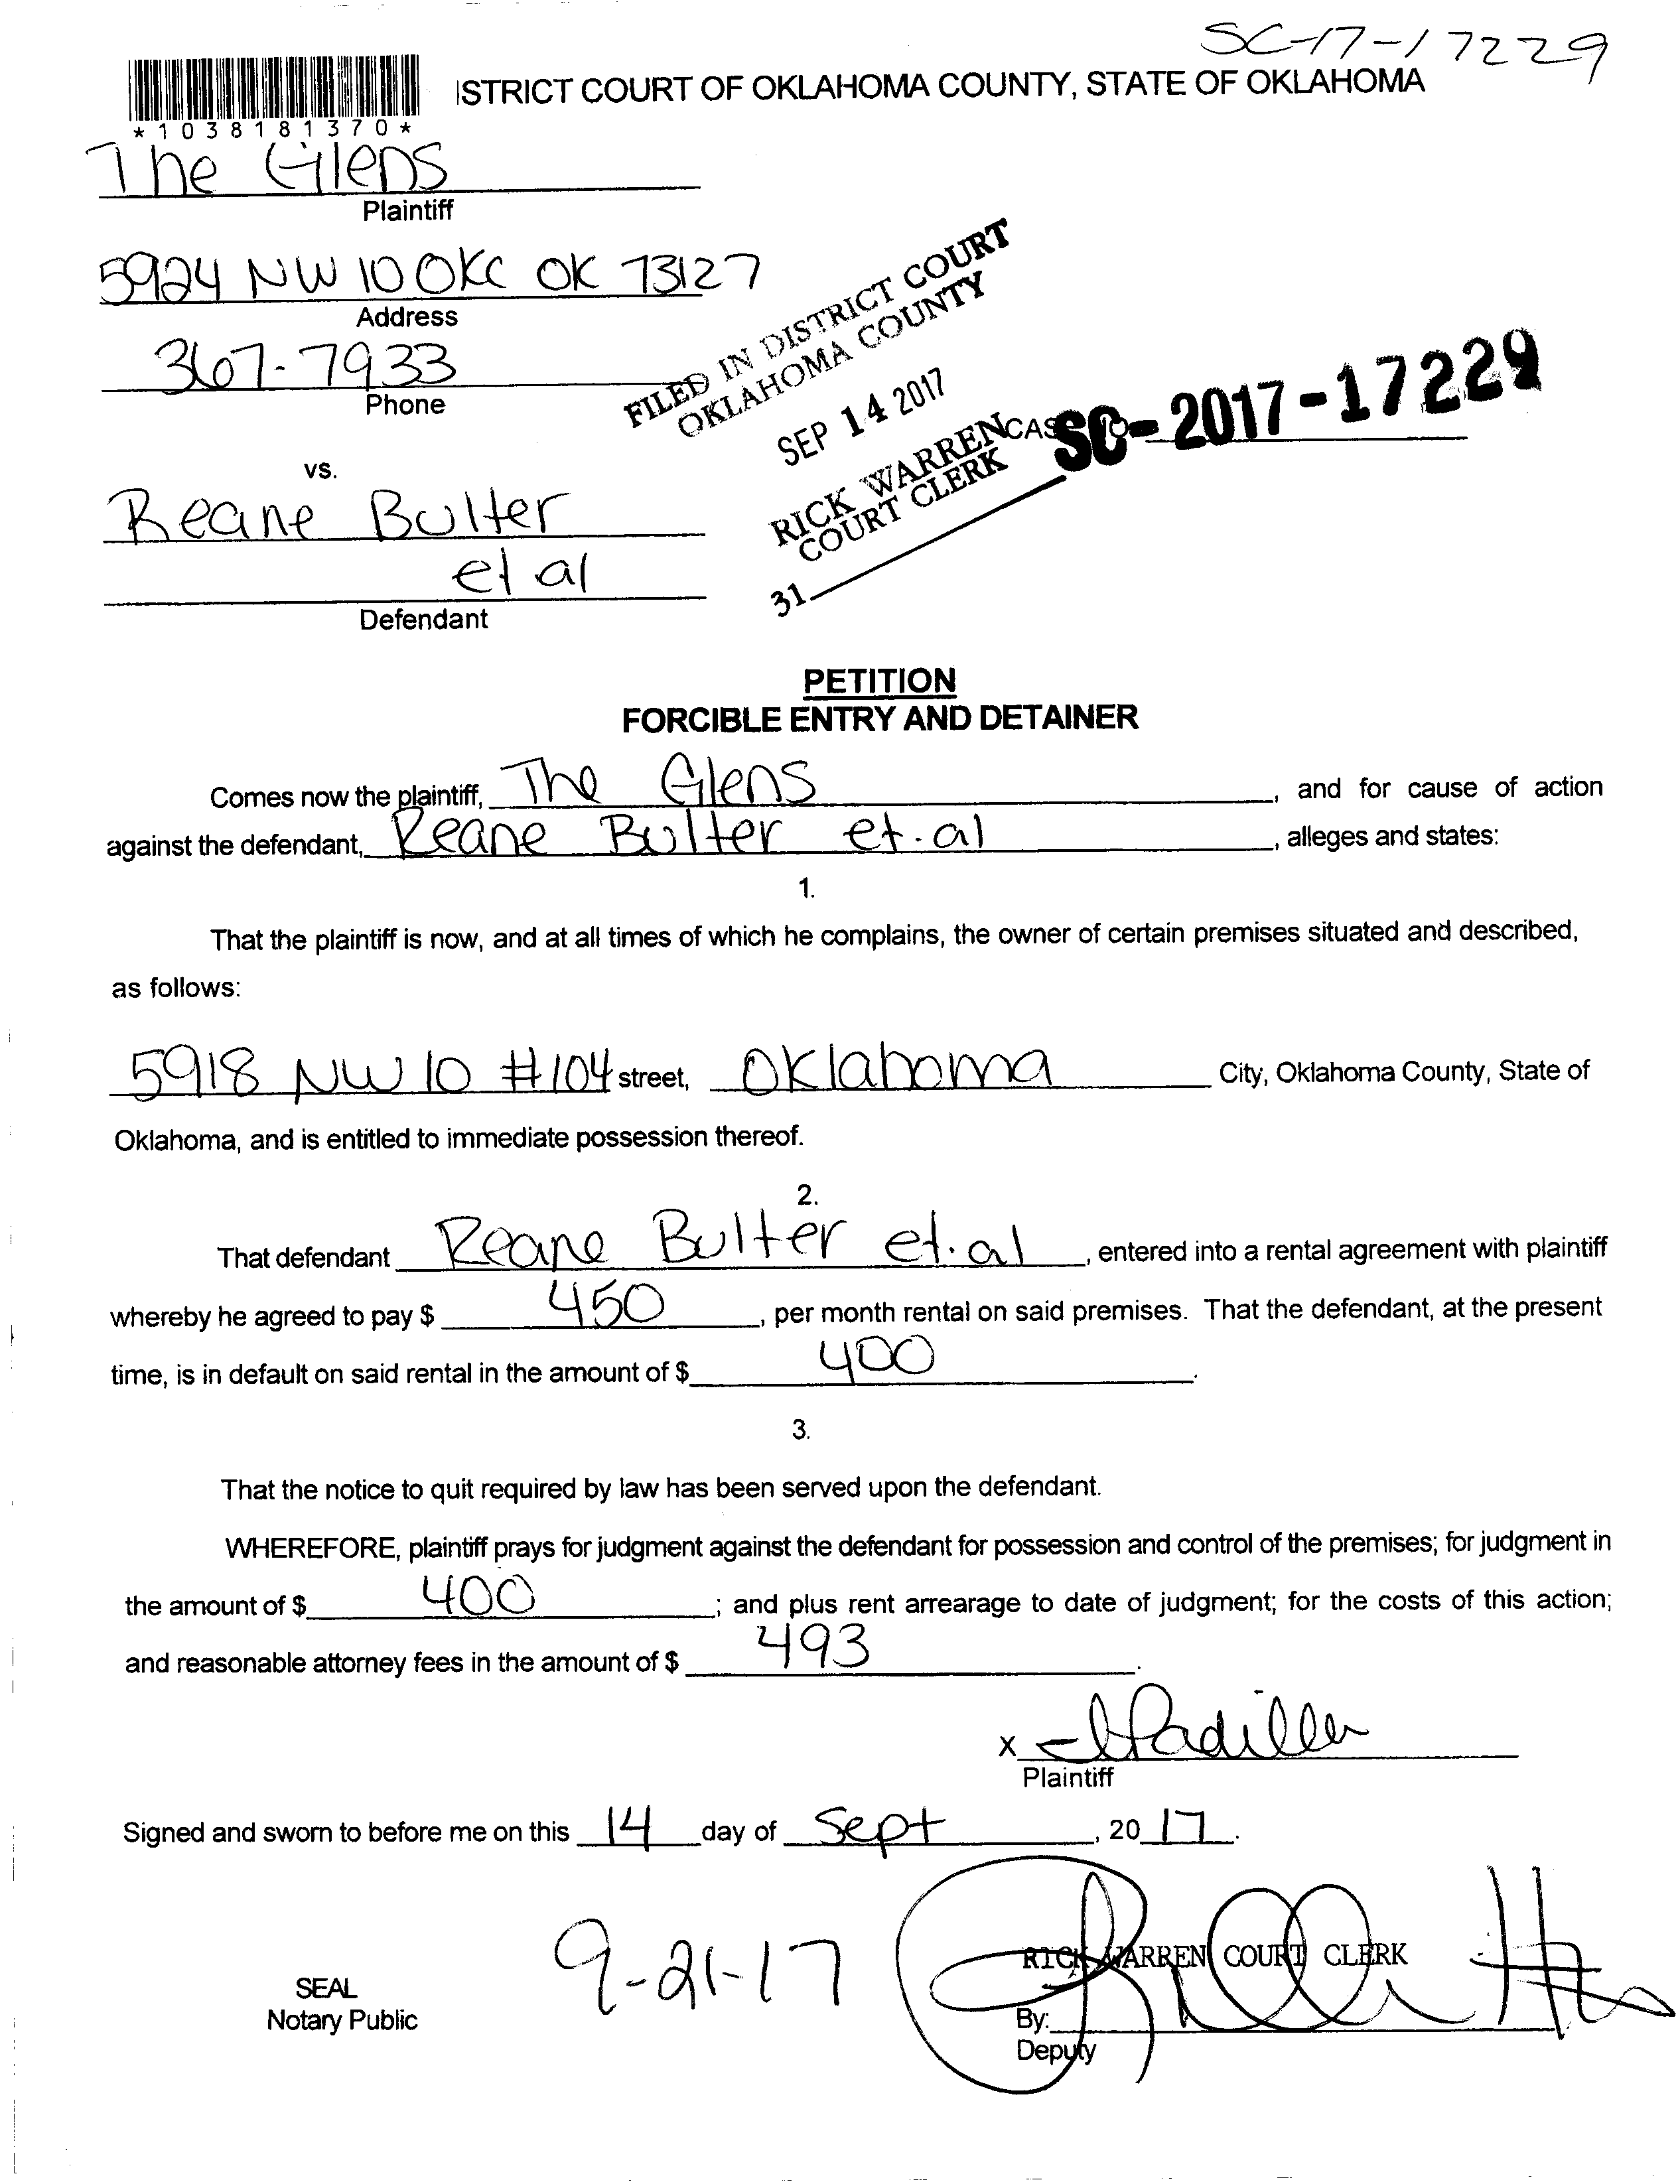 SC-17-17229
ISTRICT COURT OF OKLAHOMA COUNTY, STATE OF OKLAHOMA
*1038181370*
The Glens
Plaintiff
5924 NW 10 OKC OK 73127
Address
367-7933
Phone
FILED IN DISTRICT COURT
OKLAHOMA COUNTY
SEP 14 2017
RICK WARREN
COURT CLERK
31
SC-2017-17229
vs.
Reane Bulter
et al
Defendant
PETITION
FORCIBLE ENTRY AND DETAINER
Comes now the plaintiff, The Glens, and for cause of action
against the defendant, Reane Bulter et.al, alleges and states:
1.
That the plaintiff is now, and at all times of which he complains, the owner of certain premises situated and described,
as follows:
5918 NW 10 #104 street, Oklahoma City, Oklahoma County, State of
Oklahoma, and is entitled to immediate possession thereof.
2.
That defendant Reane Bulter et.al, entered into a rental agreement with plaintiff
whereby he agreed to pay $ 450, per month rental on said premises. That the defendant, at the present
time, is in default on said rental in the amount of $ 400.
3.
That the notice to quit required by law has been served upon the defendant.
WHEREFORE, plaintiff prays for judgment against the defendant for possession and control of the premises; for judgment in
the amount of $ 400; and plus rent arrearage to date of judgment; for the costs of this action;
and reasonable attorney fees in the amount of $ 493.
x Padilla
Plaintiff
Signed and sworn to before me on this 14 day of Sept, 2017.
9-21-17
RICK WARREN COURT CLERK
SEAL
Notary Public
By:
Deputy